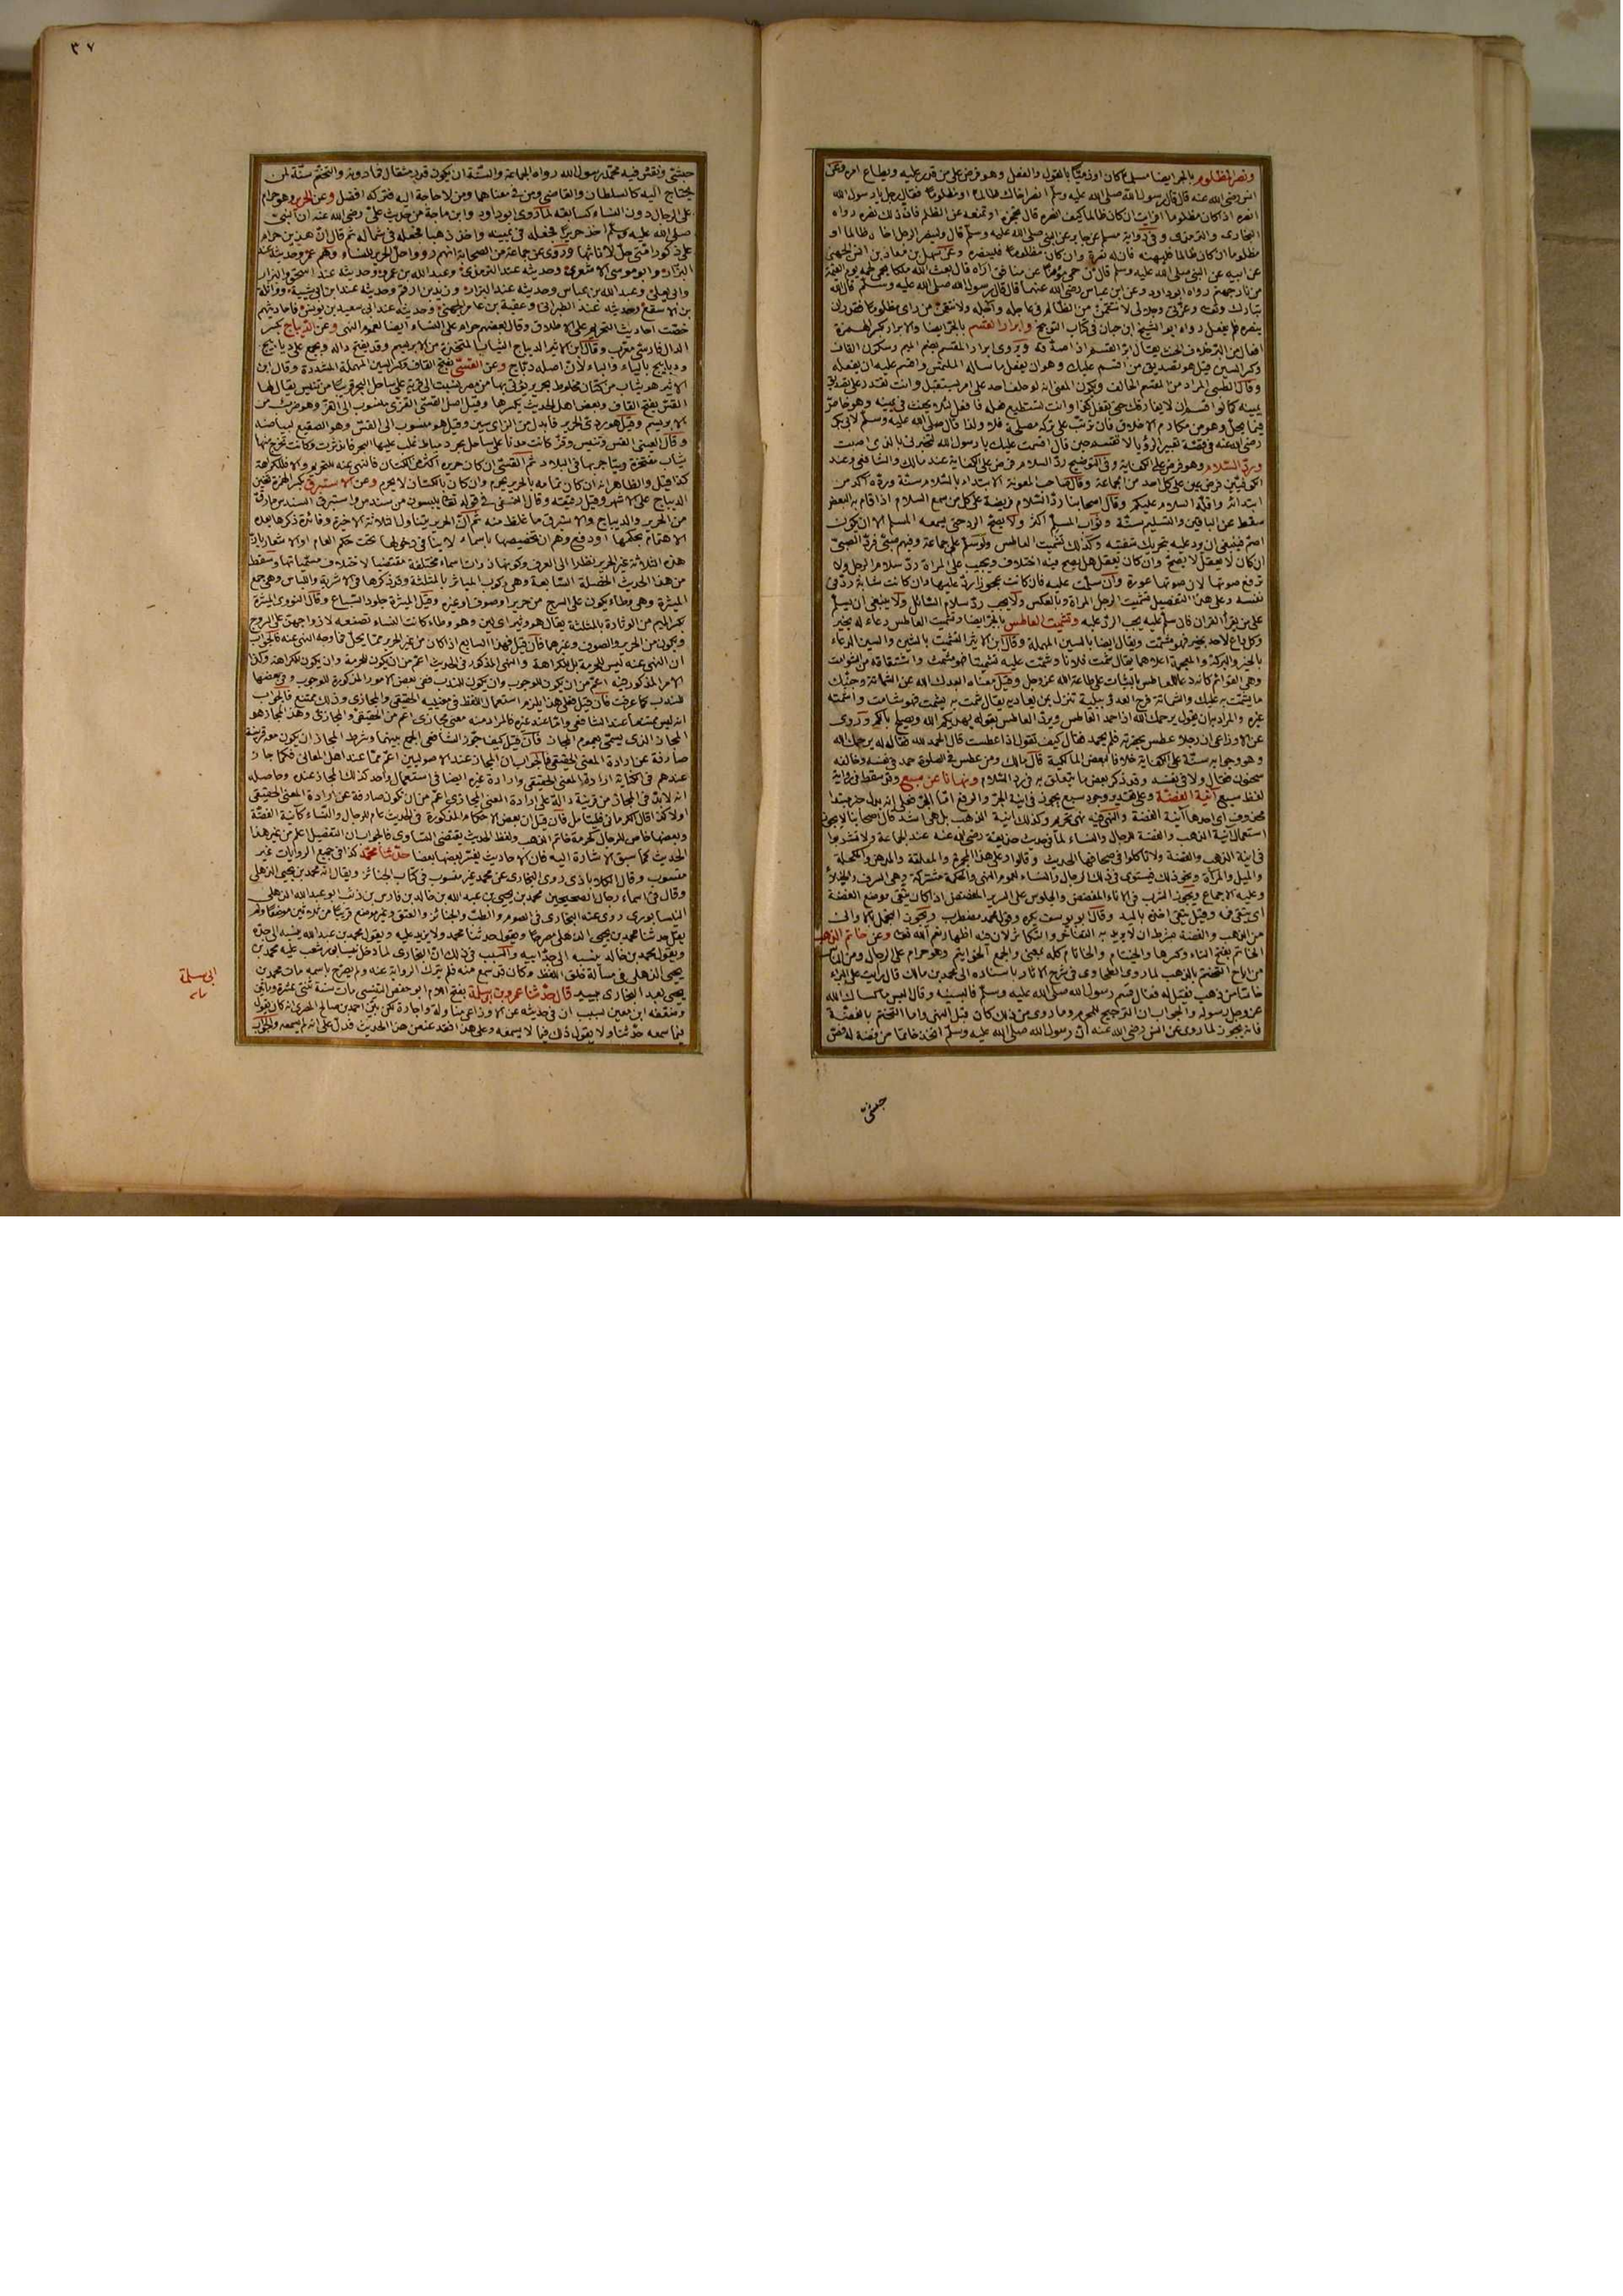 ونصر المظلوم بالجر ايضا مسلما كان او ذميا بالقول والفعل وهو فرض على من قدر عليه ويطاع امره وعن
انس رضي الله عنه قال قال رسول الله صلى الله عليه وسلم انصر اخاك ظالما او مظلوما فقال رجل يا رسول الله
انصره اذا كان مظلوما افرايت ان كان ظالما كيف انصره قال تحجزه او تمنعه عن الظلم فان ذلك نصره رواه
البخاري والترمذي وفي رواية مسلم عن جابر عن النبي صلى الله عليه وسلم قال ولينصر الرجل اخاه ظالما او
مظلوما ان كان ظالما فلينهه فانه له نصرة وان كان مظلوما فلينصره وعن سهل بن معاذ بن انس الجهني
عن ابيه عن النبي صلى الله عليه وسلم قال من حمى مؤمنا عن منافق اراه قال بعث الله ملكا يحمي لحمه يوم القيمة
من نار جهنم رواه ابو داود وعن ابن عباس رضي الله عنهما قال قال رسول الله صلى الله عليه وسلم قال الله
تبارك وتعالى وعزتي وجلالي لانتقمن من الظالم في عاجله وآجله ولانتقمن من راى مظلوما فقدر ان
ينصره فلم يفعل رواه ابو الشيخ ابن حبان في كتاب التوبيخ وابرار القسم بالجر ايضا والابرار بكسر الهمزة
افعال من البر خلاف الحنث يقال ابر القسم اذا صدقه ويروى ابرار المقسم بضم الميم وسكون القاف
وكسر السين قيل هو تصديق من اقسم عليك وهو ان يفعل ما ساله الملتمس واقسم عليه ان يفعله
وقال الطيبي المراد من المقسم الحالف ويكون المعنى انه لو حلف احد على امر مستقبل وانت تقدر على تصديق
يمينه كما لو اقسم ان لا يفارقك حتى تفعل كذا وانت تستطيع فعله فافعل لئلا يحنث في يمينه وهو خاص
فيما يحل وهو من مكارم الاخلاق فان ترتب على تركه مصلحة فلا ولذا قال صلى الله عليه وسلم لابي بكر
رضي الله عنه في قصة تعبير الرؤيا لا تقسم حين قال اقسمت عليك يا رسول الله لتخبرني بالذي اصبت
ورد السلام وهو فرض على الكفاية وفي التوضيح رد السلام فرض على الكفاية عند مالك والشافعي وعند
الكوفيين فرض عين على كل احد من الجماعة وقال صاحب المعونة الابتداء بالسلام سنة ورده آكد من
ابتدائه واقله السلام عليكم وقال اصحابنا رد السلام فريضة على كل من سمع السلام اذا قام به البعض
سقط عن الباقين والتسليم سنة وثواب المسلم اكثر ولا يصح الرد حتى يسمعه المسلم الا ان يكون
اصم فينبغي ان يرد عليه بتحريك شفتيه وكذلك تشميت العاطس ولو سلم على جماعة وفيهم صبي فرد الصبي
ان كان لا يعقل لا يصح وان كان يعقل هل يصح فيه اختلاف ويجب على المراة رد سلام الرجل ولا
ترفع صوتها لان صوتها عورة وان سلمت عليه فان كانت عجوزا رد عليها وان كانت شابة رد في
نفسه وعلى هذا التفصيل تشميت الرجل المراة وبالعكس ولا يجب رد سلام السائل ولا ينبغي ان يسلم
على من يقرأ القران فان سلم عليه يجب الرد عليه وتشميت العاطس بالجر ايضا وتشميت العاطس دعاء له بخير
وكل داع لاحد بخير فهو مشمت ويقال ايضا بالسين المهملة وقال ابن الاثير التشميت بالشين والسين الدعاء
بالخير والبركة والمعجمة اعلاهما يقال شمت فلانا وشمت عليه تشميتا فهو مشمت واشتقاقه من الشوامت
وهي القوائم كانه دعا للعاطس بالثبات على طاعة الله عز وجل وقيل معناه ابعدك الله عن الشماتة وجنبك
ما يشمت به عليك والشماتة فرح العدو ببلية تنزل بمن يعاديه يقال شمت به يشمت فهو شامت واشمته
غيره والمراد به ان يقول يرحمك الله اذا حمد العاطس ويرد العاطس بقوله يهديكم الله ويصلح بالكم وروي
عن الاوزاعي ان رجلا عطس بحضرته فلم يحمد فقال كيف تقول اذا عطست قال الحمد لله فقال له يرحمك الله
وهو وجوابه سنة على الكفاية خلافا لبعض المالكية قال مالك ومن عطس في الصلوة حمد في نفسه وخالفه
سحنون فقال ولا في نفسه وقد ذكر بعض ما يتعلق به في رد السلام ونهانا عن سبع وقد سقط في رواية
لفظ سبع آنية الفضة وعلى تقدير وجود سبع يجوز في انية الجر والرفع اما الجر فعلى انه بدل خبر مبتدا
محذوف اي احدها آنية الفضة والنهي فيه نهي تحريم وكذلك انية الذهب بل هي اشد قال اصحابنا لا يجوز
استعمال انية الذهب والفضة للرجال والنساء لما في حديث حذيفة رضي الله عنه عند الجماعة ولا تشربوا
في انية الذهب والفضة ولا تاكلوا في صحافهما الحديث وقالوا وعلى هذا المجمرة والملعقة والمدهن والمكحلة
والميل والمرآة ونحو ذلك فيستوي في ذلك الرجال والنساء لعموم النهي والحكمة مشتركة وهي السرف والخيلاء
وعليه الاجماع ويجوز الشرب في الاناء المفضض والجلوس على السرير المفضض اذا كان يتقي موضع الفضة
اي يتقي فمه وقيل يتقي اخذه باليد وقال ابو يوسف يكره وقول محمد مضطرب ويجوز التجمل بالاواني
من الذهب والفضة بشرط ان لا يريد به التفاخر والتكاثر لان فيه اظهار نعم الله تعالى وعن خاتم الذهب
الخاتم بفتح التاء وكسرها والخيتام والخاتام كله بمعنى والجمع الخواتيم وهو حرام على الرجال ومن الناس
من اباح التختم بالذهب لما روى الطحاوي في شرح الاثار باسناده الى محمد بن مالك قال رايت على البراء
خاتما من ذهب فقيل له فقال قسم رسول الله صلى الله عليه وسلم فالبسنيه وقال البس ما كساك الله
عز وجل ورسوله والجواب ان الترجيح للمحرم وما روى من ذلك كان قبل النهي واما التختم بالفضة
فانه يجوز لما روى عن انس رضي الله عنه ان رسول الله صلى الله عليه وسلم اتخذ خاتما من فضة له فص
حبشي
٣٧
حبشي ونقش فيه محمد رسول الله رواه الجماعة والسنة ان يكون قدر مثقال فما دونه والتختم سنة لمن
يحتاج اليه كالسلطان والقاضي ومن في معناهما ومن لا حاجة اليه فتركه افضل وعن الحرير وهو حرام
على الرجال دون النساء كسابقه لما روى ابو داود وابن ماجة من حديث علي رضي الله عنه ان النبي
صلى الله عليه وسلم اخذ حريرا فجعله في يمينه واخذ ذهبا فجعله في شماله ثم قال ان هذين حرام
على ذكور امتي حل لاناثها وروى عن جماعة من الصحابة انهم رووا حل الحرير للنساء وهم عمر وحديثه عند
البزار وابو موسى الاشعري وحديثه عند الترمذي وعبد الله بن عمرو وحديثه عند اسحق والبزار
وابي يعلى وعبد الله بن عباس وحديثه عند البزار وزيد بن ارقم وحديثه عند ابن ابي شيبة وواثلة
بن الاسقع وحديثه عند الطبراني وعقبة بن عامر الجهني وحديثه عند ابي سعيد بن يونس فاحاديثهم
خصت احاديث التحريم على الاطلاق وقال بعضهم حرام على النساء ايضا لعموم النهي وعن الديباج بكسر
الدال فارسي معرب وقال ابن الاثير الديباج الثياب المتخذة من الابريسم وقد يفتح داله ويجمع على ديابيج
ودبابيج بالياء والباء لان اصله دباج وعن القسي بفتح القاف وكسر السين المهملة المشددة وقال ابن
الاثير هو ثياب من كتان مخلوط بحرير يؤتى بها من مصر نسبت الى قرية على ساحل البحر قريبا من تنيس يقال لها
القس بفتح القاف وبعض اهل الحديث يكسرها وقيل اصل القسي القزي منسوب الى القز وهو ضرب من
الابريسم وقيل هو ردي الحرير فابدل من الزاي سين وقيل هو منسوب الى القس وهو الصقيع لبياضه
وقال العيني القس وتنيس وفرما كانت مدنا على ساحل بحر دمياط غلب عليها البحر فاندثرت وكانت تخرج منها
ثياب مفتخرة ويتاجر بها في البلاد ثم القسي ان كان حريره اكثر من الكتان فالنهي عنه للتحريم والا فللكراهة
كذا قيل والظاهر انه ان كان تمامه بالحرير يحرم وان كان بالكتان لا يحرم وعن الاستبرق بكسر الهمزة ثخين
الديباج على الاشهر وقيل رقيقه وقال النسفي في قوله تعالى يلبسون من سندس واستبرق السندس ما رق
من الحرير والديباج والاستبرق ما غلظ منه ثم ان الحرير يتناول الثلاثة الاخيرة وفائدة ذكرها بعده
الاهتمام بحكمها او دفع وهم ان تخصيصها باسماء لا ينافي دخولها تحت حكم العام او الاشعار بان
هذه الثلاثة غير الحرير نظرا الى العرف وكونها ذوات اسماء مختلفة مقتضيا لاختلاف مسمياتها وسقط
من هذا الحديث الخصلة السابعة وهي ركوب المياثر بالمثلثة وقد ذكرها في الاشربة واللباس وهي جمع
الميثرة وهي وطاء يكون على السرج من حرير او صوف او غيره وقيل الميثرة جلود السباع وقال النووي الميثرة
بكسر الميم من الوثارة بالمثلثة يقال هو وثير اي لين وهو وطاء كانت النساء تصنعه لازواجهن على السروج
ويكون من الحرير والصوف وغيرهما فان قيل فهذا السابع اذا كان من غير الحرير مما يحل فما وجه النهي عنه فالجواب
ان النهي عنه ليس للحرمة بل للكراهة والنهي المذكور في الحديث اعم من ان يكون للحرمة وان يكون للكراهة وكذا
الامر المذكور فيه اعم من ان يكون للوجوب وان يكون للندب ففي بعض الامور المذكورة للوجوب وفي بعضها
للندب كما عرفت فان قيل فعلى هذا يلزم استعمال اللفظ في معنييه الحقيقي والمجازي وذلك ممتنع فالجواب
انه ليس بممتنع عند الشافعي واما عند غيره فالمراد منه معنى مجازي اعم من الحقيقي والمجازي وهذا المجاز هو
المجاز الذي يسمى بعموم المجاز فان قيل كيف جوز الشافعي الجمع بينهما وشرط المجاز ان يكون معه قرينة
صارفة عن ارادة المعنى الحقيقي فالجواب ان المجاز عند الاصوليين اعم مما عند اهل المعاني فكما جاز
عندهم في الكناية ارادة المعنى الحقيقي وارادة غيره ايضا في استعمال واحد كذلك المجاز عنده وحاصله
انه لا بد في المجاز من قرينة دالة على ارادة المعنى المجازي اعم من ان تكون صارفة عن ارادة المعنى الحقيقي
اولا كذا قال الكرماني فليتامل فان قيل ان بعض الاحكام المذكورة في الحديث عام للرجال والنساء كآنية الفضة
وبعضها خاص للرجال كحرمة خاتم الذهب ولفظ الحديث يقتضي التساوي فالجواب ان التفصيل اعلم من غير هذا
الحديث كما سبق الاشارة اليه فان الاحاديث يفسر بعضها بعضا حدثنا محمد كذا في جميع الروايات غير
منسوب وقال الكلاباذي روى البخاري عن محمد غير منسوب في كتاب الجنائز ويقال انه محمد بن يحيى الذهلي
وقال في اسماء رجال الصحيحين محمد بن يحيى بن عبد الله بن خالد بن فارس بن ذئب ابو عبد الله الذهلي
النيسابوري روى عنه البخاري في الصوم والطب والجنائز والعتق وغير موضع قريبا من ثلاثين موضعا ولم
يقل حدثنا محمد بن يحيى الذهلي مصرحا ويقول حدثنا محمد ولا يزيد عليه ويقول محمد بن عبد الله ينسبه الى جده
ويقول محمد بن خالد ينسبه الى جد ابيه والسبب في ذلك ان البخاري لما دخل نيسابور شغب عليه محمد بن
يحيى الذهلي في مسألة خلق اللفظ وكان قد سمع منه فلم يترك الرواية عنه ولم يصرح باسمه مات محمد بن
يحيى بعد البخاري بيسير قال حدثنا عمرو بن ابي سلمة بفتح اللام ابو حفص التنيسي مات سنة ثنتي عشرة ومائتين
وضعفه ابن معين بسبب ان في حديثه عن الاوزاعي مناولة واجازة لكن بين احمد بن صالح المصري انه كان يقول
فيما سمعه حدثنا ولا يقول ذلك فيما لا يسمعه وعلى هذا فقد عنعن هذا الحديث فدل على انه لم يسمعه والجواب
ابي سلمة